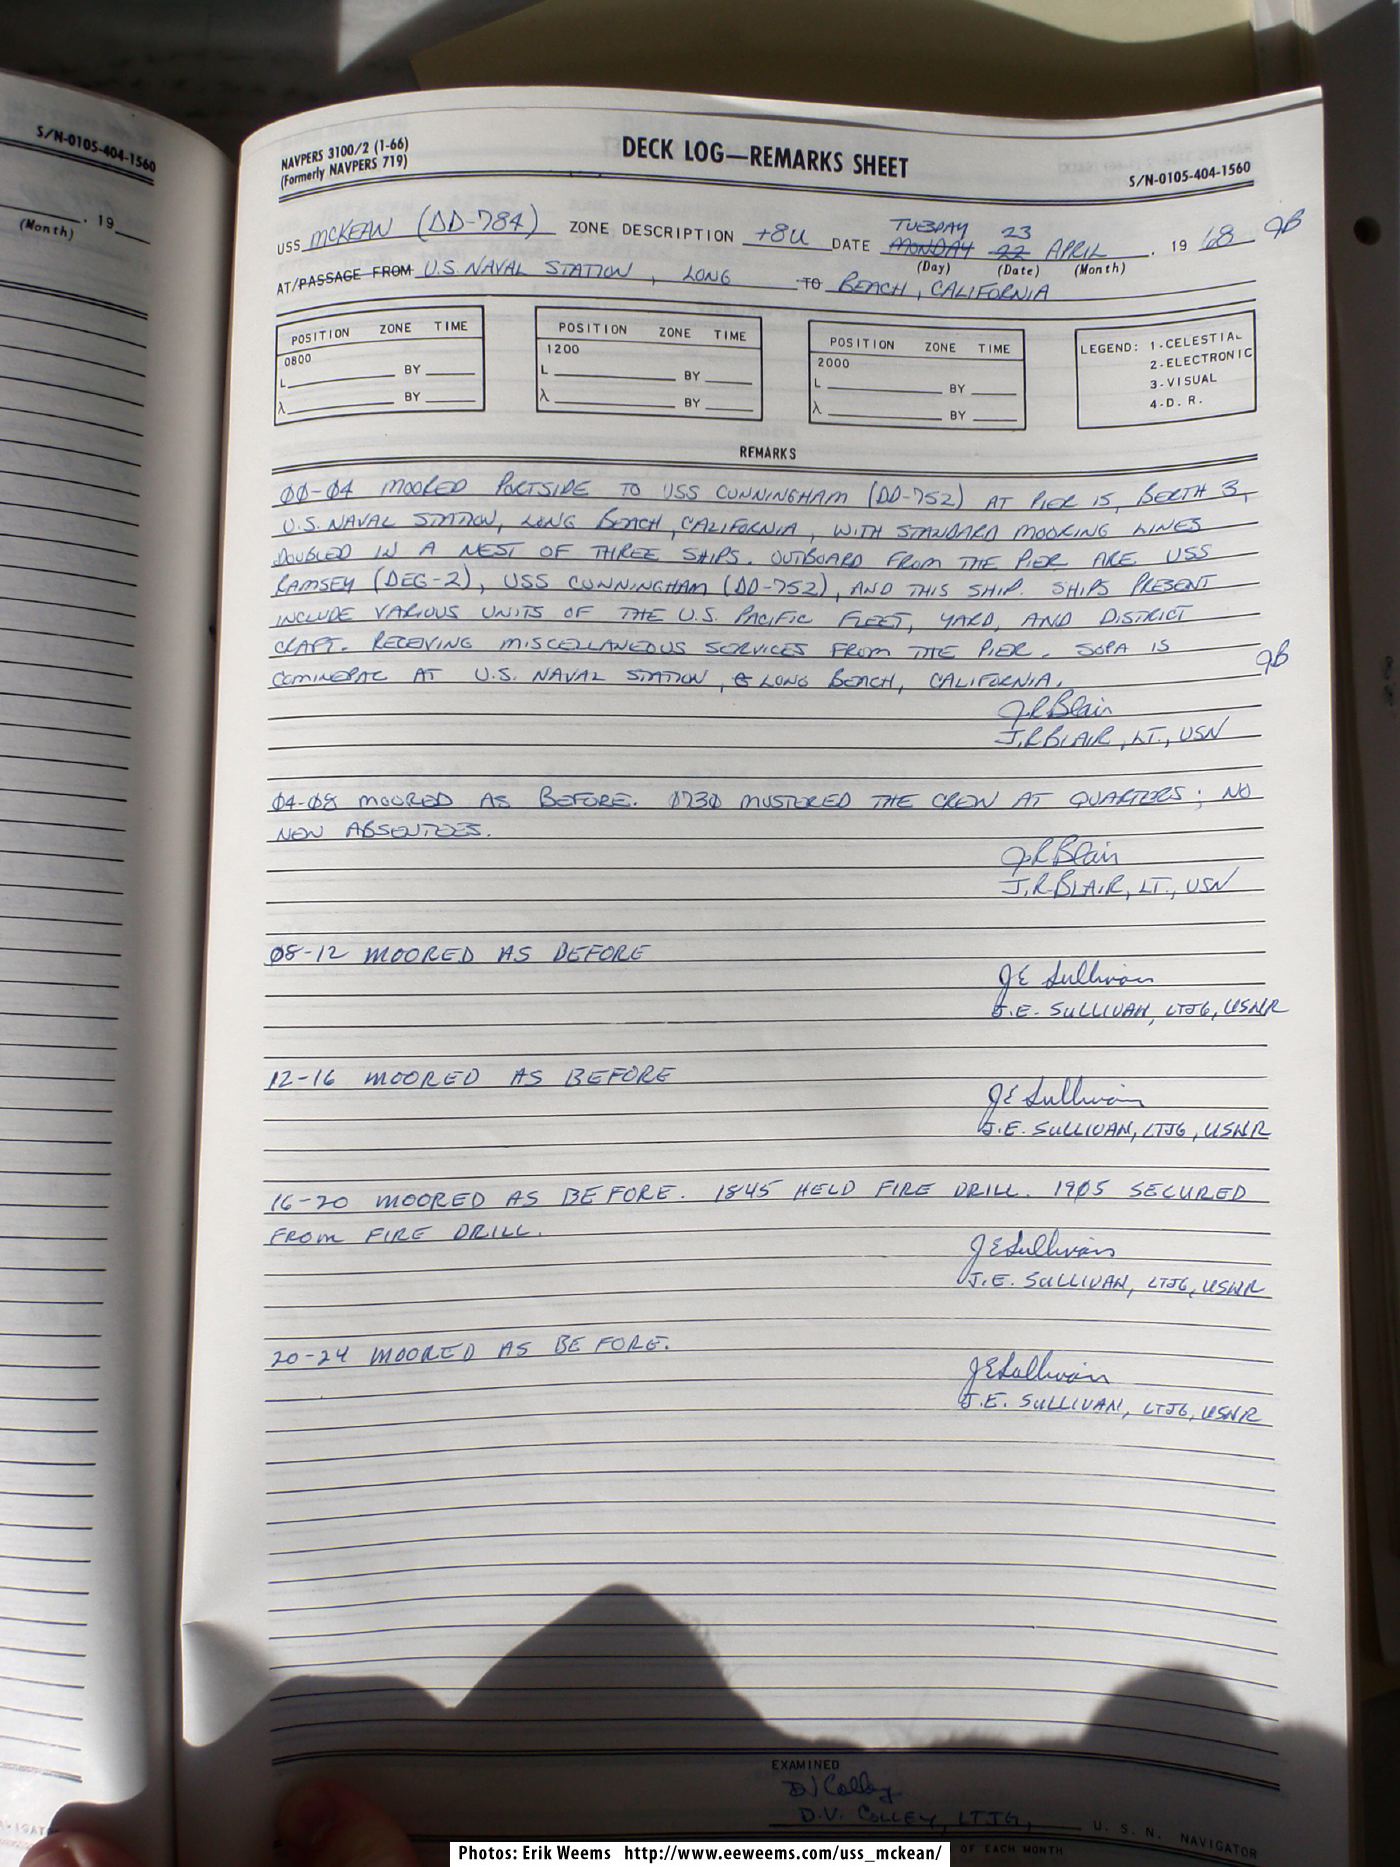 S/N-0105-404-1560
, 19
(Month)
NAVPERS 3100/2 (1-66)
(Formerly NAVPERS 719)
DECK LOG—REMARKS SHEET
S/N-0105-404-1560
USS MCKEAN (DD-784) ZONE DESCRIPTION +8U DATE TUESDAY MONDAY 23 22 APRIL, 19 68 JB
(Day) (Date) (Month)
AT/PASSAGE FROM U.S. NAVAL STATION, LONG TO BEACH, CALIFORNIA
POSITION ZONE TIME
0800
L BY
λ BY
POSITION ZONE TIME
1200
L BY
λ BY
POSITION ZONE TIME
2000
L BY
λ BY
LEGEND: 1-CELESTIAL
2-ELECTRONIC
3-VISUAL
4-D. R.
REMARKS
00-04 MOORED PORTSIDE TO USS CUNNINGHAM (DD-752) AT PIER 15, BERTH 3,
U.S. NAVAL STATION, LONG BEACH, CALIFORNIA, WITH STANDARD MOORING LINES
DOUBLED IN A NEST OF THREE SHIPS. OUTBOARD FROM THE PIER ARE USS
RAMSEY (DEG-2), USS CUNNINGHAM (DD-752), AND THIS SHIP. SHIPS PRESENT
INCLUDE VARIOUS UNITS OF THE U.S. PACIFIC FLEET, YARD, AND DISTRICT
CRAFT. RECEIVING MISCELLANEOUS SERVICES FROM THE PIER. SOPA IS
COMINEPAC AT U.S. NAVAL STATION, LONG BEACH, CALIFORNIA. JB
JRBlair
J.R BLAIR, LT., USN
04-08 MOORED AS BEFORE. 0730 MUSTERED THE CREW AT QUARTERS; NO
NEW ABSENTEES.
JRBlair
J.R BLAIR, LT., USN
08-12 MOORED AS BEFORE
JE Sullivan
J.E. SULLIVAN, LTJG, USNR
12-16 MOORED AS BEFORE
JE Sullivan
J.E. SULLIVAN, LTJG, USNR
16-20 MOORED AS BEFORE. 1845 HELD FIRE DRILL. 1905 SECURED
FROM FIRE DRILL.
JESullivan
J.E. SULLIVAN, LTJG, USNR
20-24 MOORED AS BEFORE.
JESullivan
J.E. SULLIVAN, LTJG, USNR
EXAMINED
DV Colley
D.V. COLLEY, LTJG, U. S. N. NAVIGATOR
OF EACH MONTH
Photos: Erik Weems http://www.eeweems.com/uss_mckean/